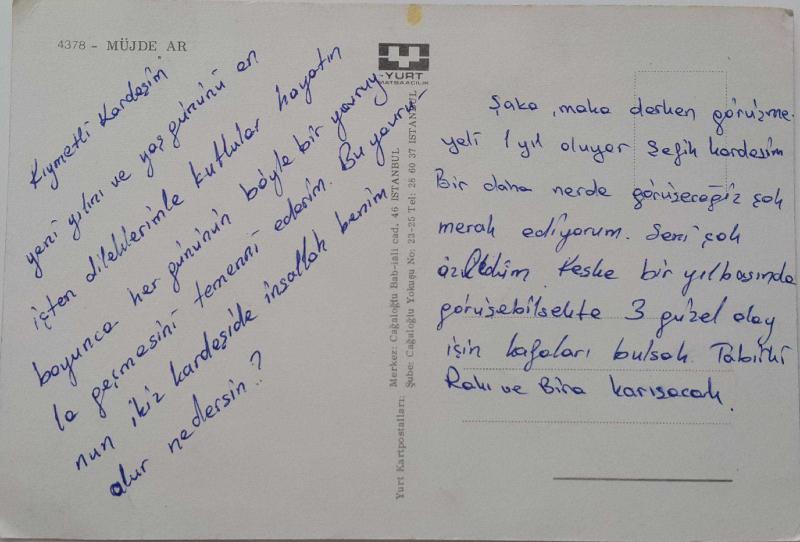 4378 - MÜJDE AR
Kıymetli Kardeşim
yeni yılını ve yaş gününü en
içten dileklerimle kutlular hayatın
boyunca her gününün böyle bir yavruy
la geçmesini temenni ederim. Bu yavru-
nun ikiz kardeşide inşallah benim
olur nedersin..?
YURT
MATBAACILIK
Yurt Kartpostalları: Merkez: Cağaloğlu Bab-ıali cad. 46 İSTANBUL
Şube: Cağaloğlu Yokuşu No: 23-25 Tel: 28 60 37 İSTANBUL
Şaka, maka derken görüşme-
yeli 1 yıl oluyor Şefik kardeşim
Bir daha nerde görüşeceğiz çok
merak ediyorum. Seni çok
özlldüm. Keşke bir yılbaşında
görüşebilsekte 3 güzel olay
için kafaları bulsak. Tabiiki
Rakı ve Bira karışacak.